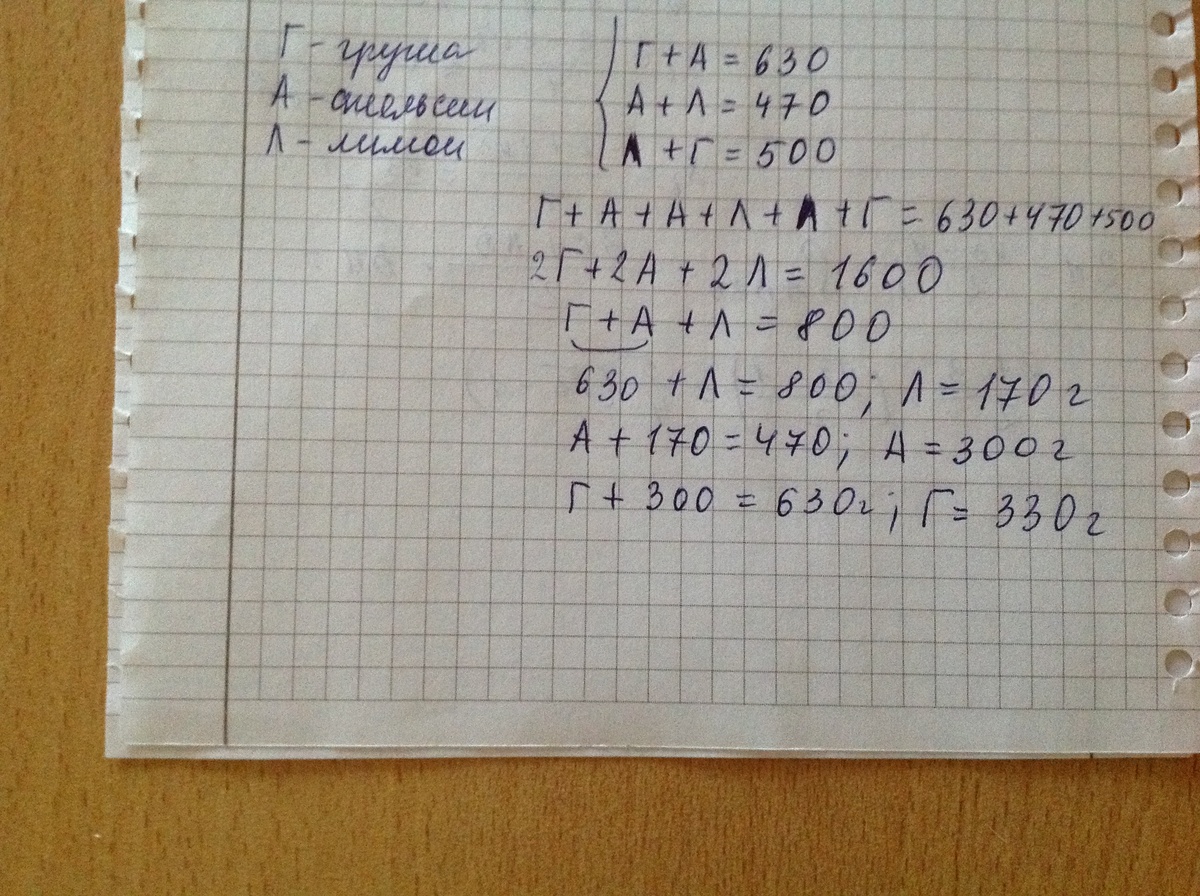 Г - груша
А - апельсин
Л - лимон
Г + А = 630
А + Л = 470
Л + Г = 500
Г + А + А + Л + Л + Г = 630 + 470 + 500
2Г + 2А + 2Л = 1600
Г + А + Л = 800
630 + Л = 800; Л = 170 г
А + 170 = 470; А = 300 г
Г + 300 = 630 г; Г = 330 г